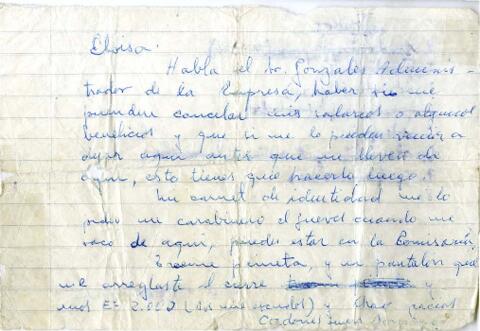 Eloisa.
Habla el Sr. Gonzales Adminis-
trador de la Empresa, haber si me
pueden cancelar mis salarios o algunos
beneficios y que si me lo pueden
aqui antes que me lleven de
aqui, esto tienes que hacerlo luego.
Mi carnet de identidad me lo
pidio un carabinero el jueves cuando me
saco de aqui, puede estar en la Comisaria.
Traeme pimeta, y un pantalon que
me arreglaste el cierre y
unos Eº 2.000 (dos mil escudos) y